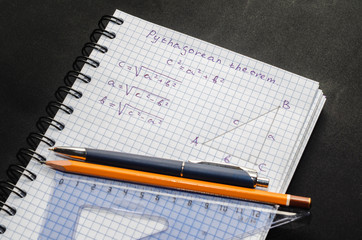 Pythagorean theorem
c²=a²+b²
c=√a²+b²
a=√c²-b²
b=√c²-a²
B
c
a
A
b
C
0 1 2 3 4 5 6 7 8 9 10 11 12